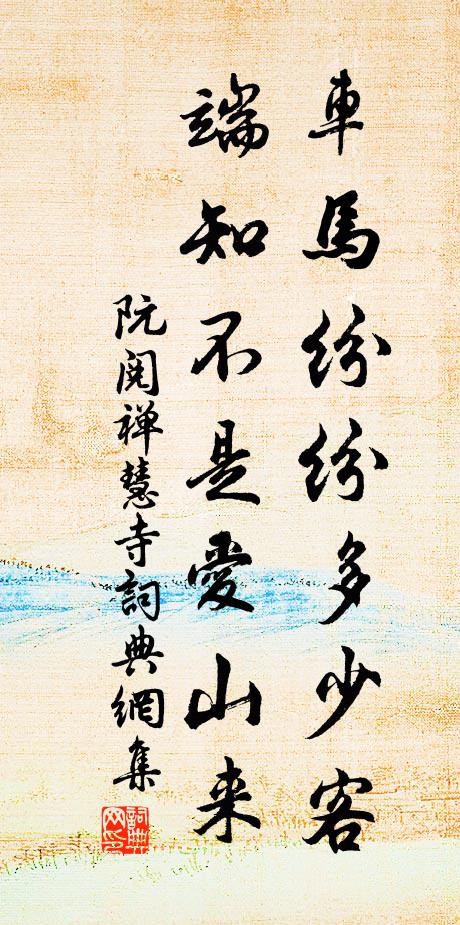 車馬紛紛多少客
端知不是愛山来
阮閱禅慧寺詞典網集
詞典网印